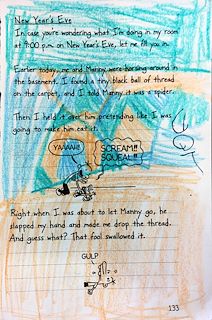 New Year's Eve
In case you're wondering what I'm doing in my room
at 9:00 p.m. on New Year's Eve, let me fill you in.
Earlier today, me and Manny were horsing around
in the basement. I found a tiny black ball of thread
on the carpet, and I told Manny it was a spider.
Then I held it over him pretending like I was
going to make him eat it.
YAAAAH!!
SCREAM!!
SQUEAL!!
Right when I was about to let Manny go, he
slapped my hand and made me drop the thread.
And guess what? That fool swallowed it.
GULP
133